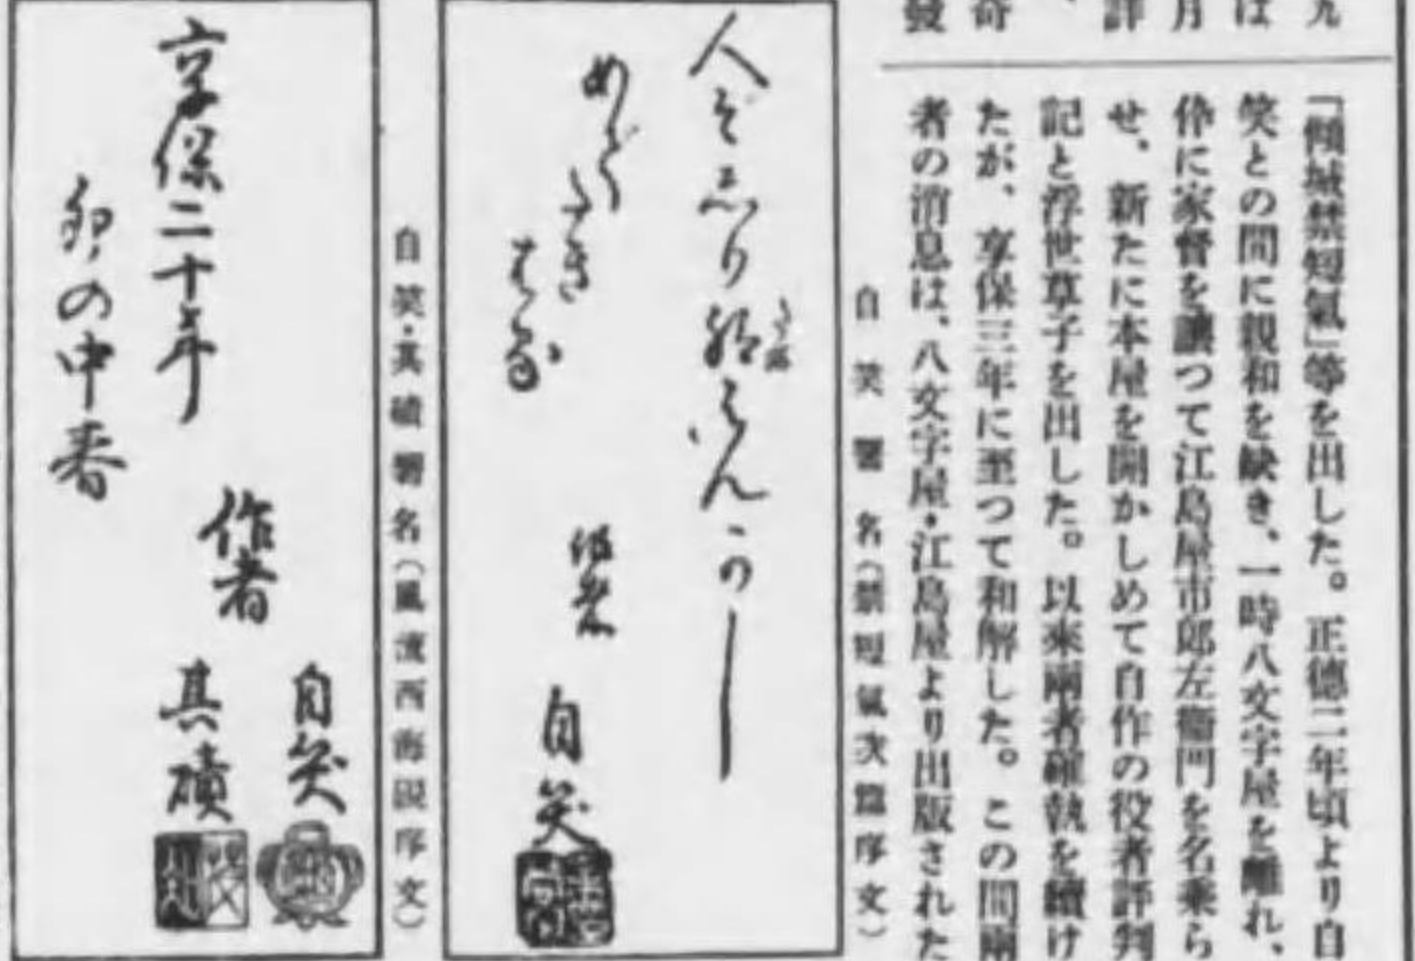 九
は
月
評
、
奇
發
「傾城禁短氣」等を出した。正德二年頃より自
笑との間に親和を缺き、一時八文字屋を離れ、
伜に家督を讓つて江島屋市郎左衞門を名乘ら
せ、新たに本屋を開かしめて自作の役者評判
記と浮世草子を出した。以來兩者確執を續け
たが、享保三年に至つて和解した。この間兩
者の消息は、八文字屋・江島屋より出版された
自笑署名(禁短氣次篇序文)
めでたき
作者
自笑
自笑・其磧署名(風流西海硯序文)
享保二十年
卯の中春
作者
自笑
其磧